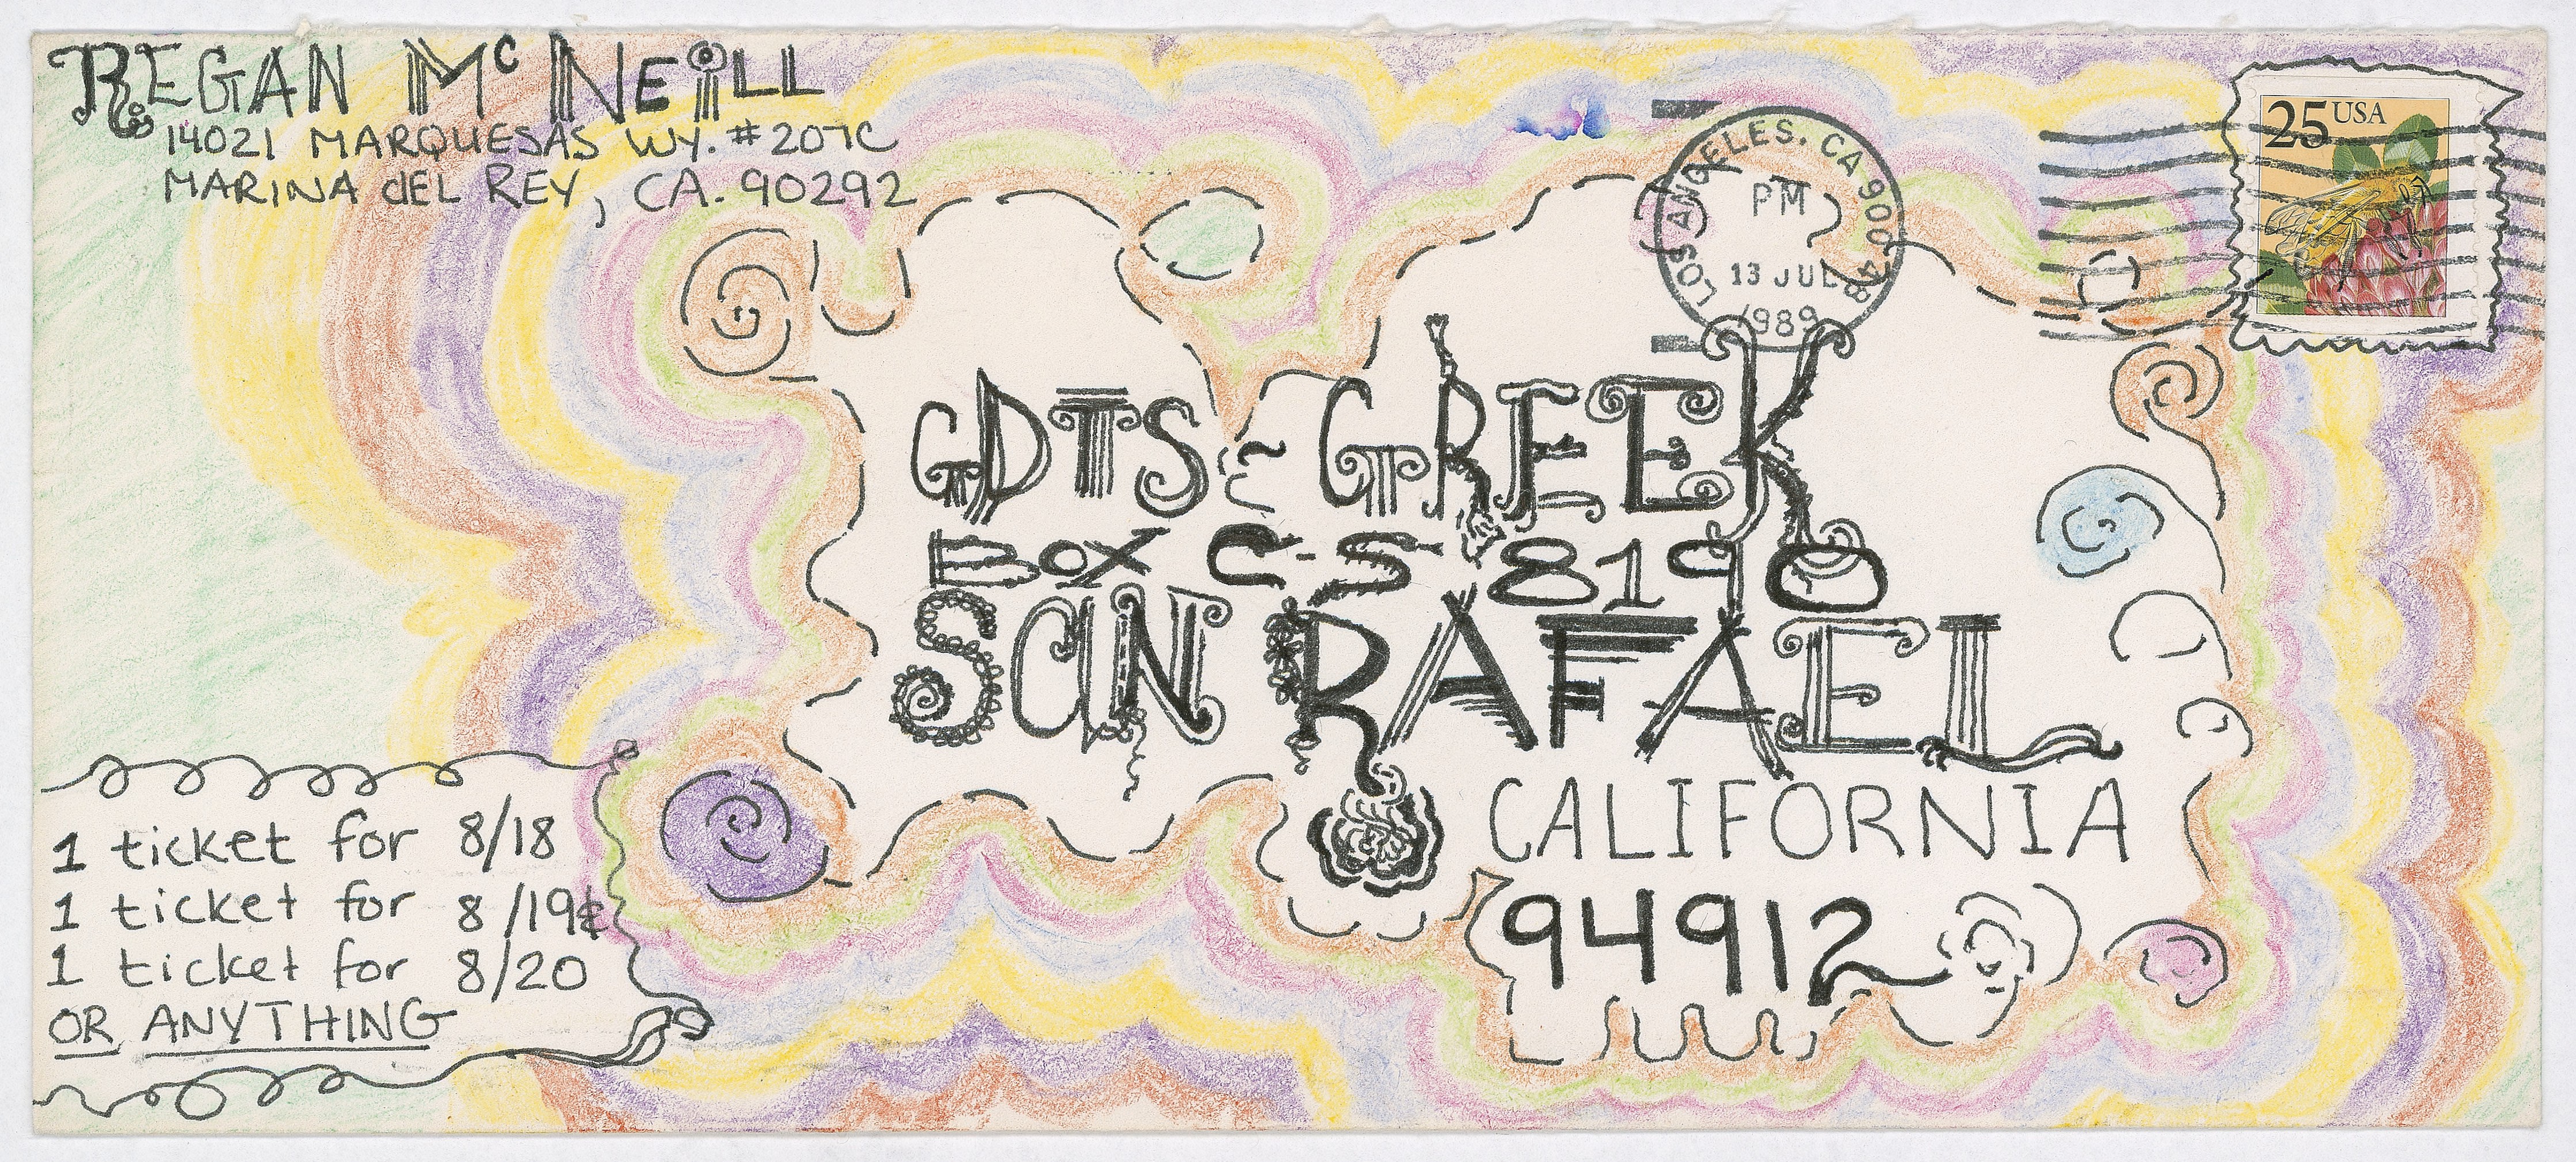 REGAN McNEiLL
14021 MARQUESAS WY. #207C
MARINA dEL REY, CA. 90292
LOS ANGELES, CA 900
PM
13 JUL
1989
25 USA
GDTS-GREEK
BOX C-S 8190
SaN RAFAEL
CALIFORNIA
94912
1 ticket for 8/18
1 ticket for 8/19¢
1 ticket for 8/20
OR ANYTHING